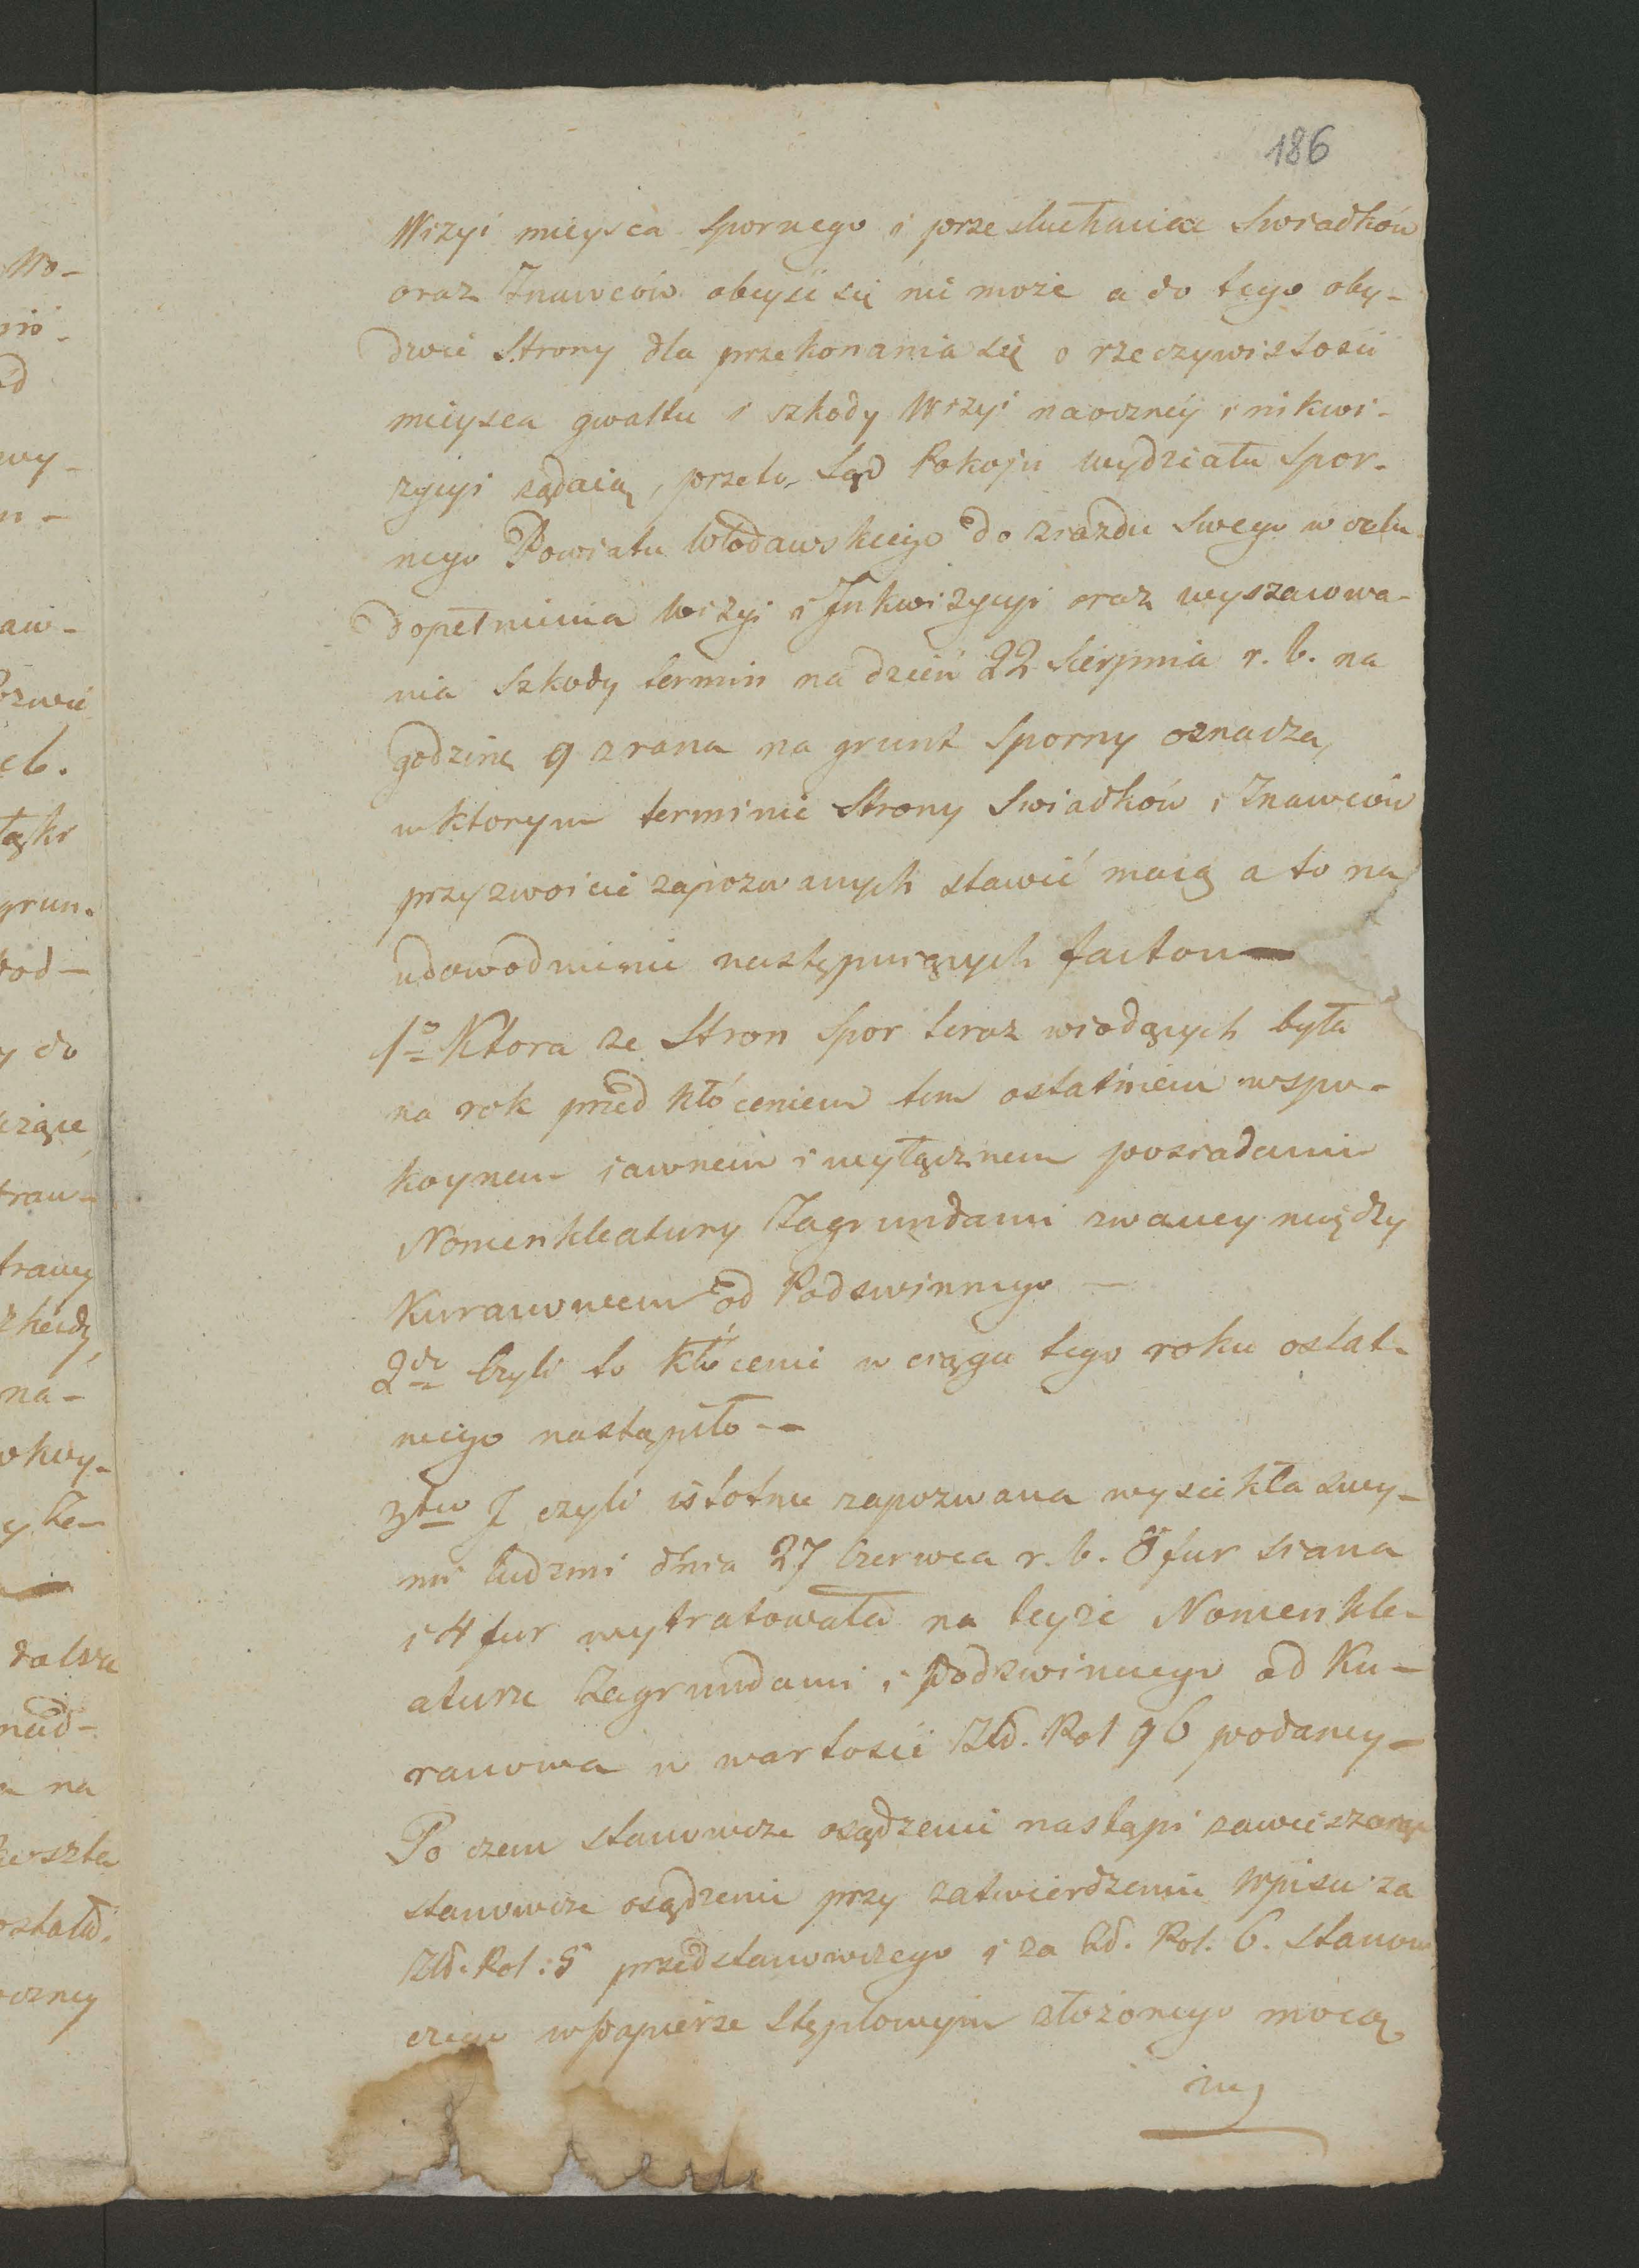 186
Wizyi mieysca Spornego i przesłuchania Swiadków
oraz Znawców obeyść się nie może a do tego oby-
dwie Strony dla przekonania się o rzeczywistości
mieysca gwałtu i szkody Wizyi naoczney i nikwi-
zycyi rządaią, przeto Sąd Pokoju wydziału Spor-
nego Powiatu Włodawskiego do ziazdu Swego w celu
dopełnienia Wizyi i Inkwizycyi oraz wyszacowa-
nia Szkody termin na dzień 22 Sierpnia r. b. na
godzinę 9 zrana na grunt Sporny oznacza,
w ktorym terminie Strony Swiadków i Znawców
przyzwoicie zapozwanych stawić maią a to na
udowodnienie następuiących factow —
1o Ktora ze Stron Spor teraz wiodących była
na rok przed kłóceniem tem ostatniem w spo-
koynem iawnem i wyłącznem posiadaniu
Nomenklatury Zagrundami zwaney między
Kurawowem od Podswinnego —
2do Czyli to kłócenie w ciągu tego roku ostat-
niego nastąpiło —
3tio I czyli istotnie zapozwana wysiekła swy-
mi ludzmi dnia 27 Czerwca r. b. 8 fur siana
i 4 fur wytratowała na teyże Nomenkla-
aturze Zagrundami i Podswinnego od Ku-
ranowa w wartości Złł. Pol 96 podaney —
Po czem stanowcze osądzenie nastąpi zawieszaiąc
stanowcze osądzenie przy zatwierdzeniu Wpisu za
Złł. Pol: 5 przedstanowczego i za Zł. Pol. 6. stanow
czego w papierze Stęplowym złożonego mocą